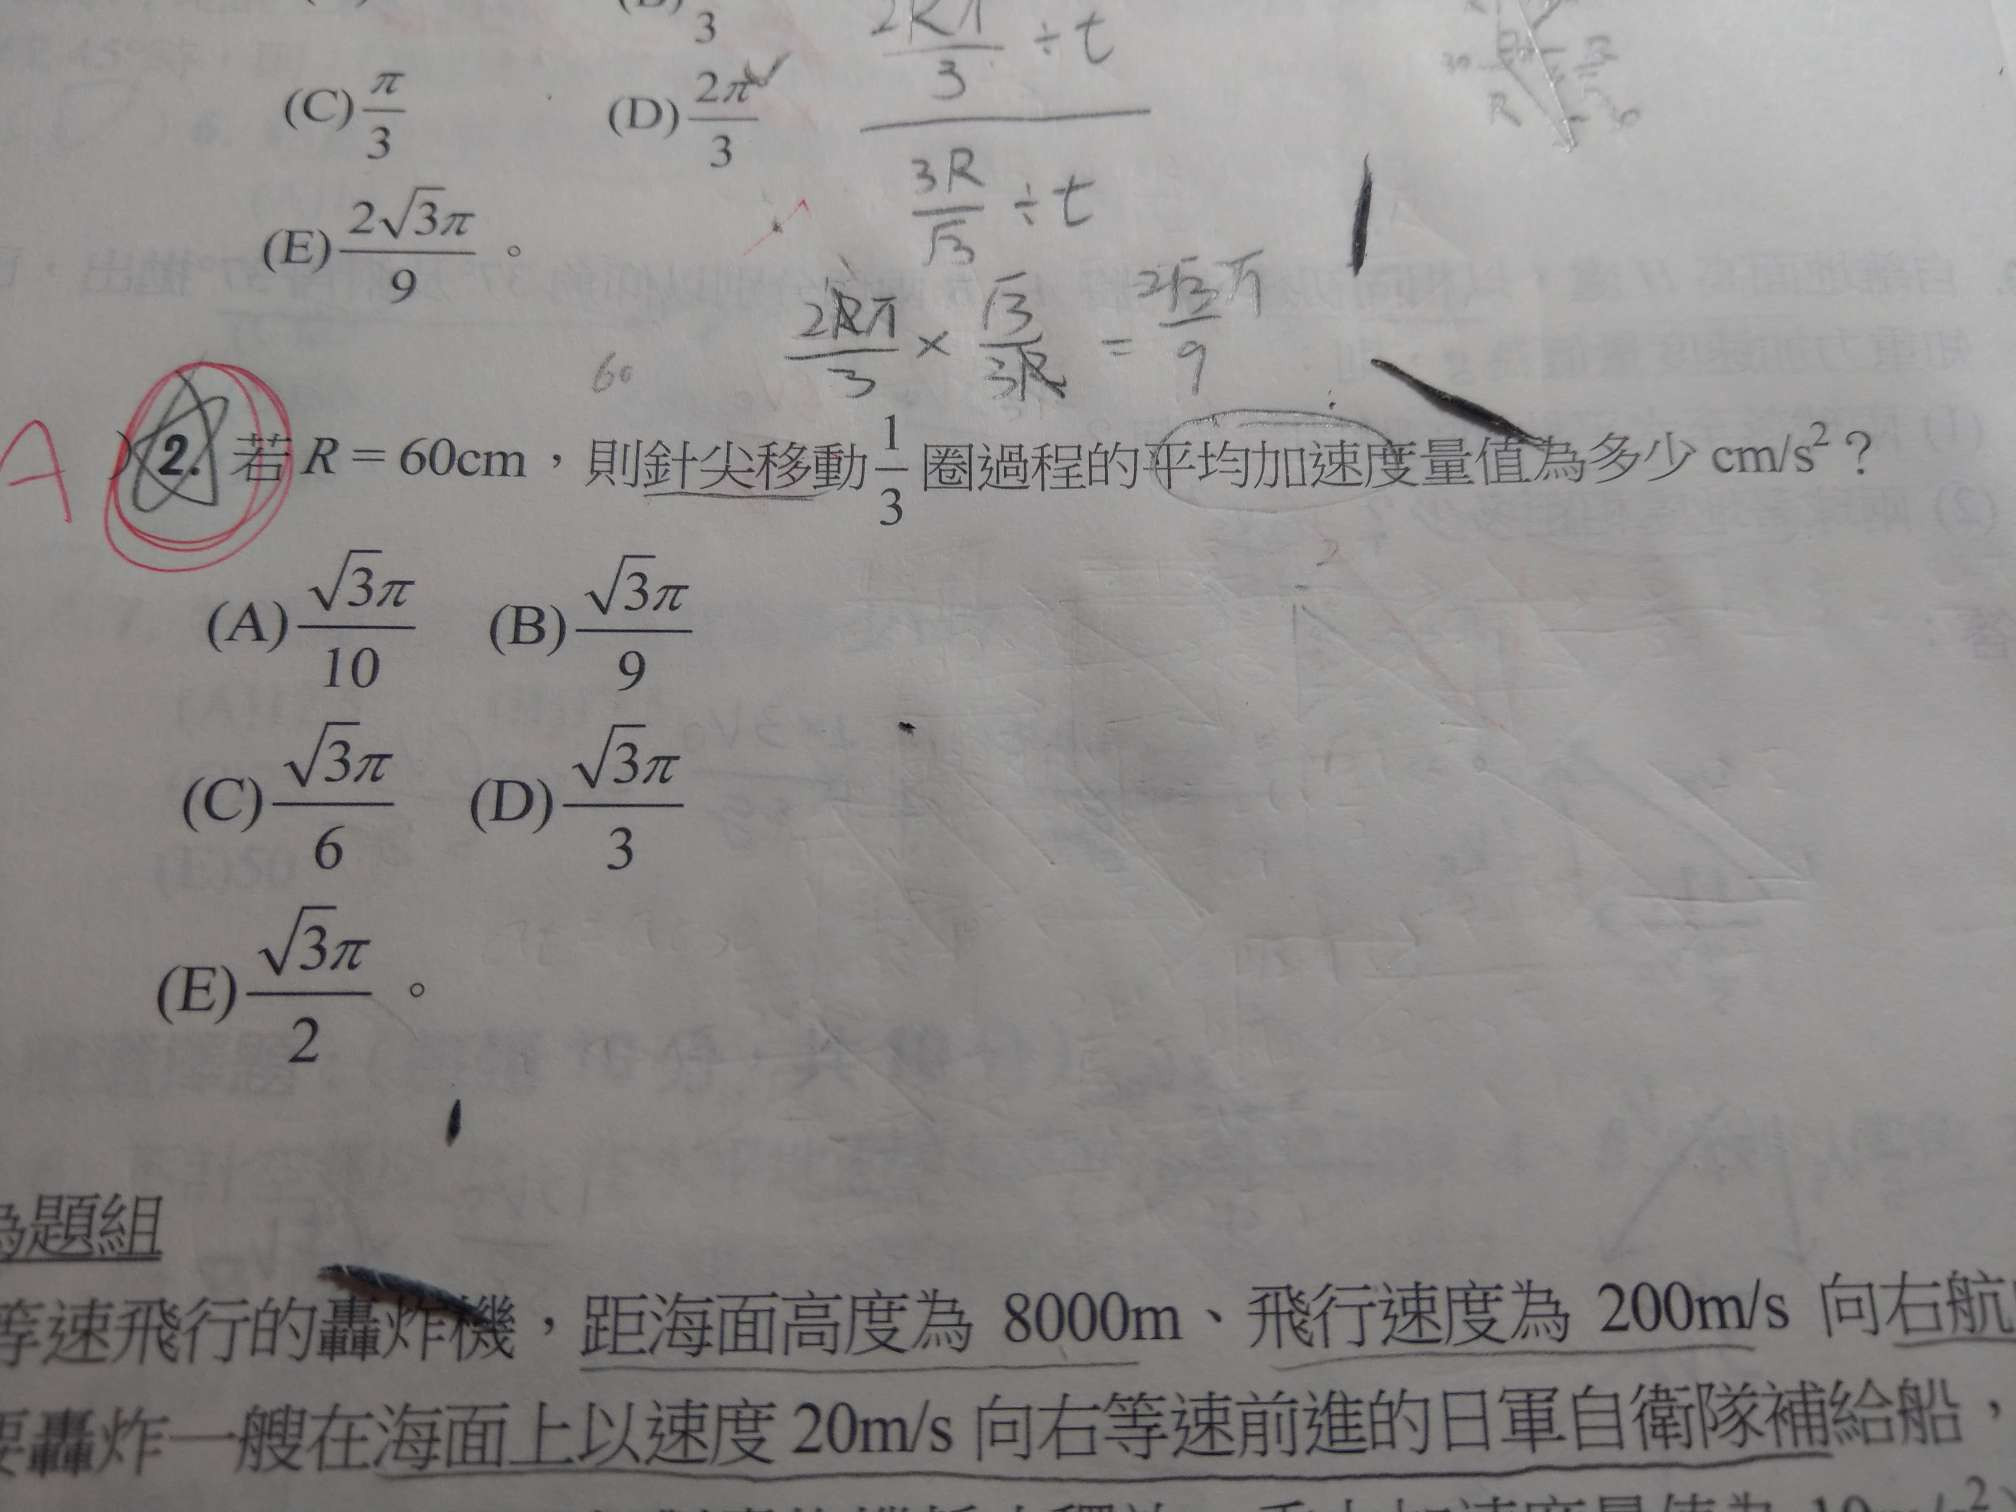 3
2Rπ/3 ÷ t
(C) π/3 (D) 2π/3
3R/√3 ÷ t
(E) 2√3π/9 。
2Rπ/3 × √3/3R = 2√3π/9
60
A
2. 若 R = 60cm，則針尖移動 1/3 圈過程的平均加速度量值為多少 cm/s²？
(A) √3π/10 (B) √3π/9
(C) √3π/6 (D) √3π/3
(E) √3π/2 。
為題組
等速飛行的轟炸機，距海面高度為 8000m、飛行速度為 200m/s 向右航
要轟炸一艘在海面上以速度 20m/s 向右等速前進的日軍自衛隊補給船，